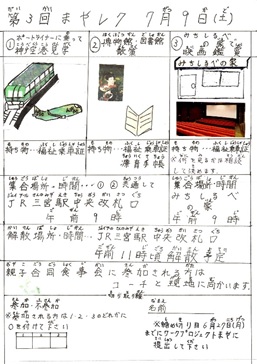 第3回 まやレク 7月9日(土)
① ポートライナーに乗って
神戸空港見学
② 博物館・図書館
散策
③ みちしるべの家で
映画鑑賞
みちしるべの家
持ち物…福祉乗車証
持ち物…福祉乗車証
療育手帳
持ち物…福祉乗車証
集合場所・時間…①②共通して
JR三宮駅中央改札口
午前9時
集合場所・時間
みちしるべの家
午前9時
解散場所・時間…JR三宮駅中央改札口
午前11時頃解散予定
親子合同食事会に参加される方は
コーチと現地に向かいます。
参加・不参加
参加される方は1・2・3のどれかに
○を付けて下さい
名前
締め切り日6月27日(月)
までにワークプロジェクトまやに
提出して下さい